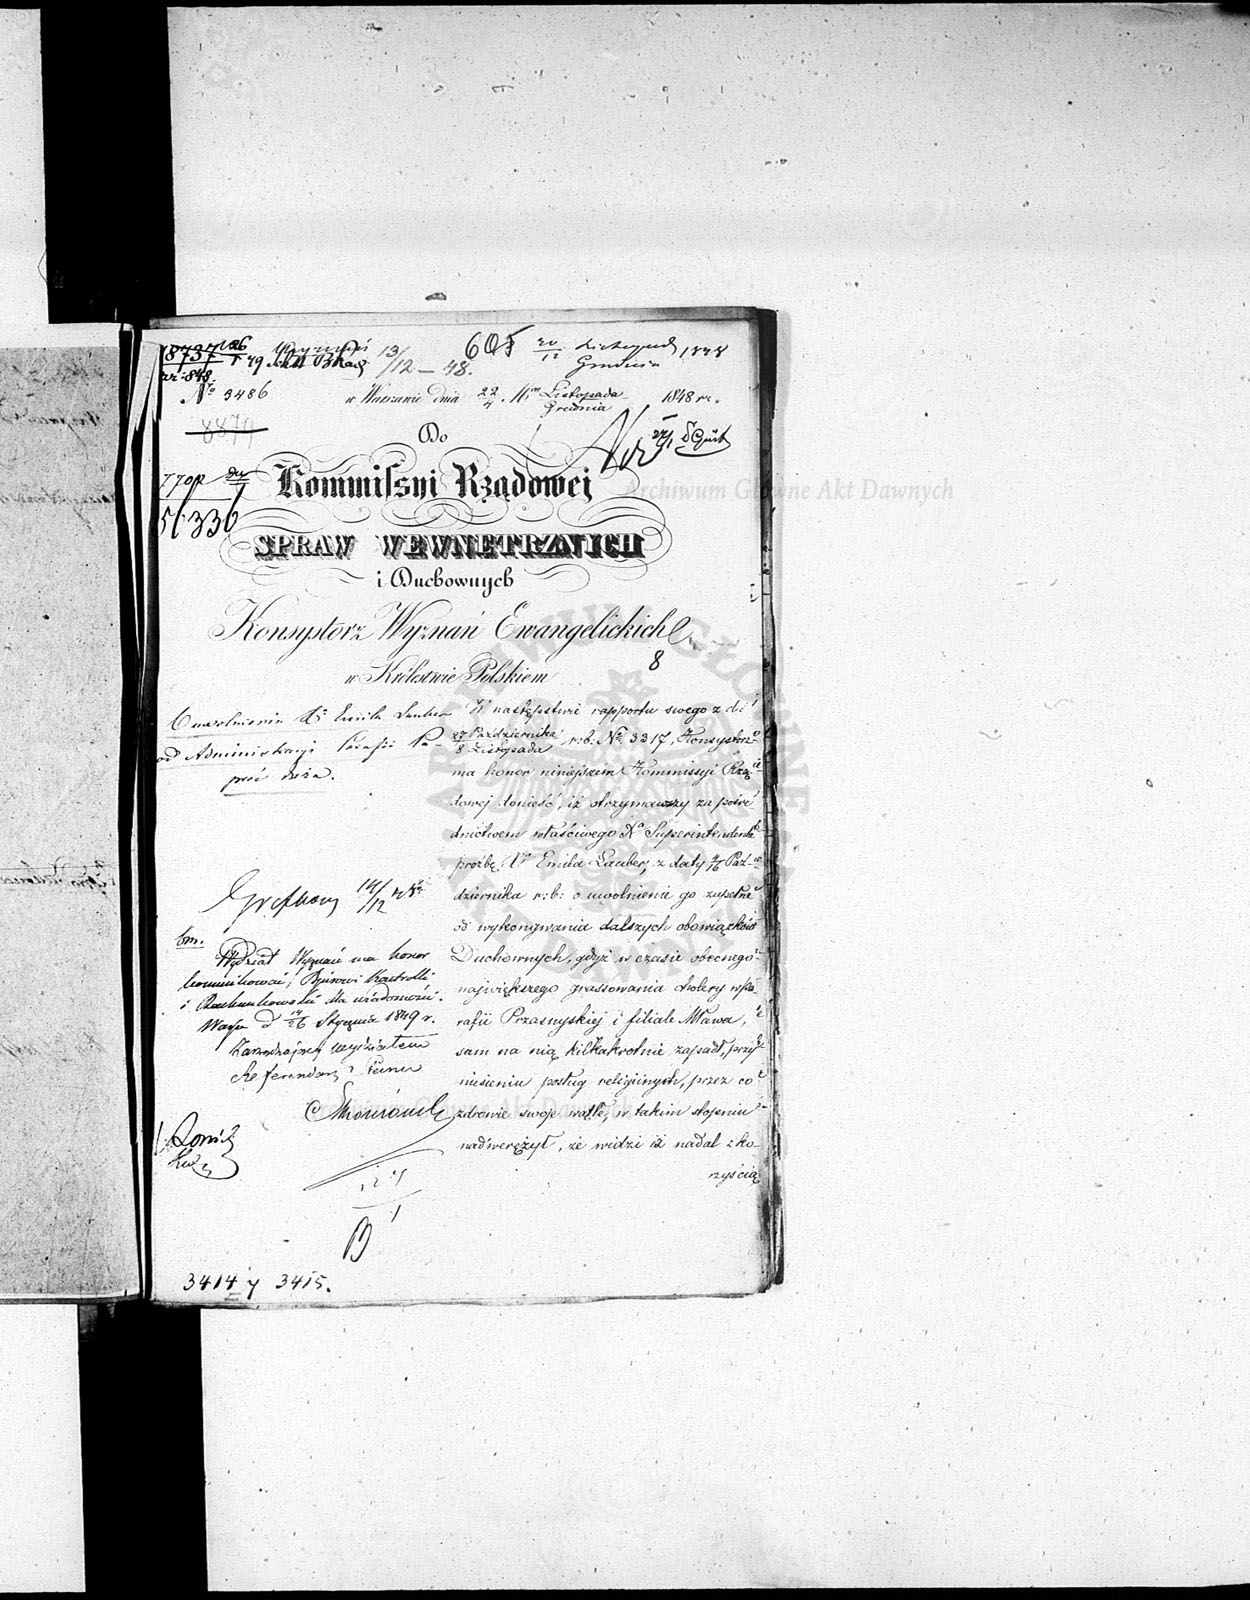 605
13/12 – 48.
Nº 3486 w Warszawie dnia 22/4 Listopada/Grudnia 1848 r.
Do
Kommissyi Rządowej
SPRAW WEWNĘTRZNYCH
i Duchownych
Konsystorz Wyznań Ewangelickich
w Królestwie Polskiem
8
O uwolnienie Xª Emila Lauber
od Administracyi Parafii
W następstwie rapportu swego z d:
27 Października/8 Listopada r:b: Nº 3317, Konsystorz
ma honor niniejszem Kommissyi Rzą-
dowej donieść, iż otrzymawszy za pośre-
dnictwem właściwego Xª Superintendenta
prośbę Xª Emila Lauber, z daty 4/16 Paź-
dziernika r:b: o uwolnienie go zupełne
od wykonywania dalszych obowiązków
Duchownych, gdyż w czasie obecnego
największego grassowania cholery w pa-
rafii Przasnyskiej i filiale Mława,
sam na nią kilkakrotnie zapadł, przy
niesieniu posług religijnych, przez co
zdrowie swoje wątłe, w takim stopniu
nadwerężył, że widzi iż nadal z ko-
rzyścią
14/12
Wydział Wyznań ma honor
kommunikować Biurowi Kontrolli
i Rachunkowości dla wiadomości.
Warsz. d 14/26 Stycznia 1849 r.
Zarządzający wydziałem
Referendarz Stanu
3414 y 3415.
Archiwum Główne Akt Dawnych
Archiwum Główne Akt Dawnych
ARCHIWUM GŁÓWNE AKT DAWNYCH